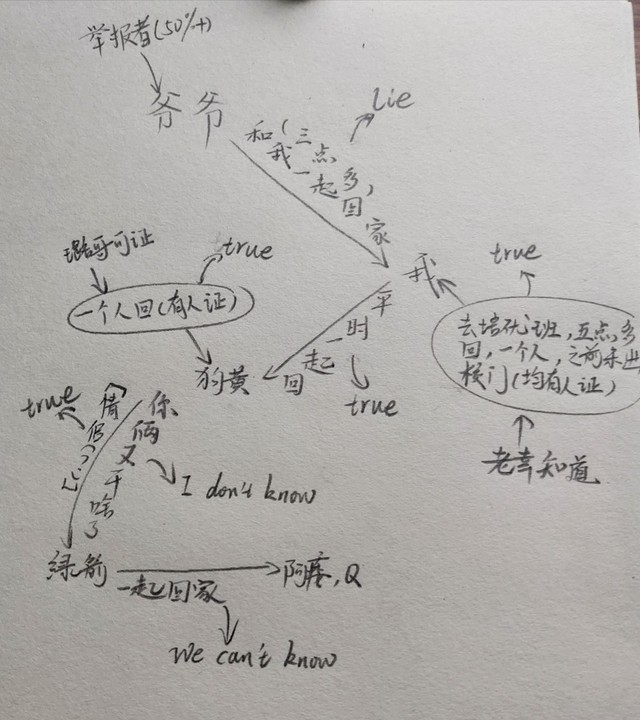 举报者(50%+)
爷爷
Lie
和我一起回家
(三点多,
true
一个人回(有人证)
我
true
去培优班,五点多
回,一个人,之前未出
校门(均有人证)
平时一起回
true
狗黄
老李知道
true
你俩又干啥了
I don't know
一起回家
阿疼,Q
We can't know